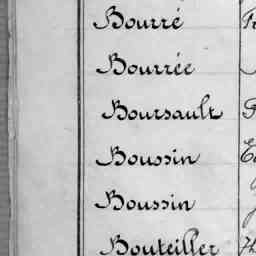 Bourré
Bourrée
Boursault
Boussin
Boussin
Bouteiller